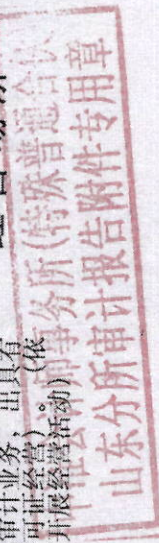 审计业务 出具有
可证经营）（依
开展经营活动）。
会计师事务所(特殊普通合伙
山东分所审计报告附件专用章